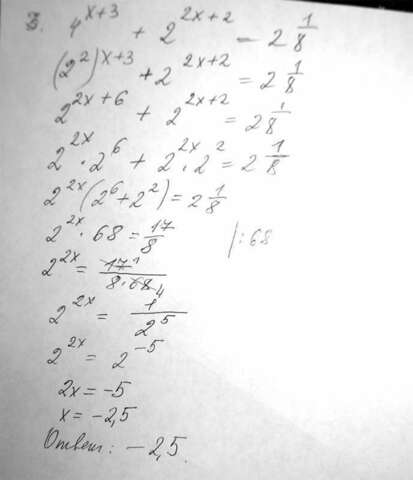 3. 4^{x+3} + 2^{2x+2} = 2 1/8
(2²)^{x+3} + 2^{2x+2} = 2 1/8
2^{2x+6} + 2^{2x+2} = 2 1/8
2^{2x} · 2⁶ + 2^{2x} · 2² = 2 1/8
2^{2x}(2⁶ + 2²) = 2 1/8
2^{2x} · 68 = 17/8 |:68
2^{2x} = 17¹/(8·68₄)
2^{2x} = 1/2⁵
2^{2x} = 2^{-5}
2x = -5
x = -2,5
Ответ: -2,5.